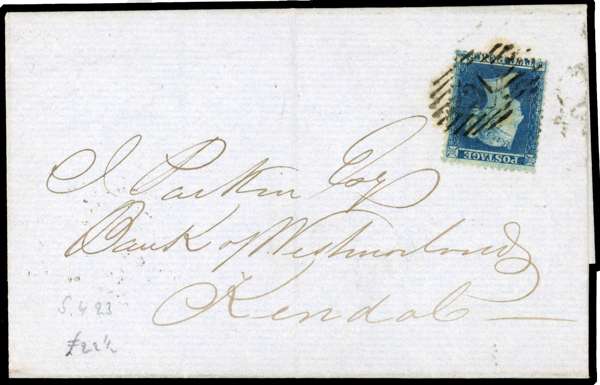 POSTAGE
J. Parkin Esq
Bank of Westmorland
Kendal
S.G 23
£22½